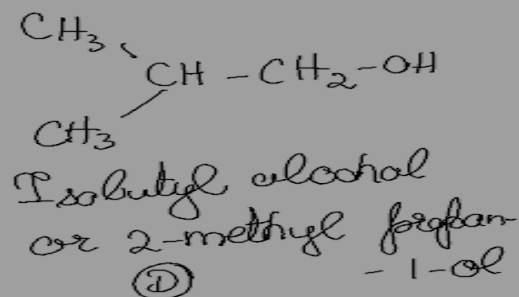 CH3
CH - CH2 - OH
CH3
Isobutyl alcohol
or 2-methyl propan-
D - 1 - ol